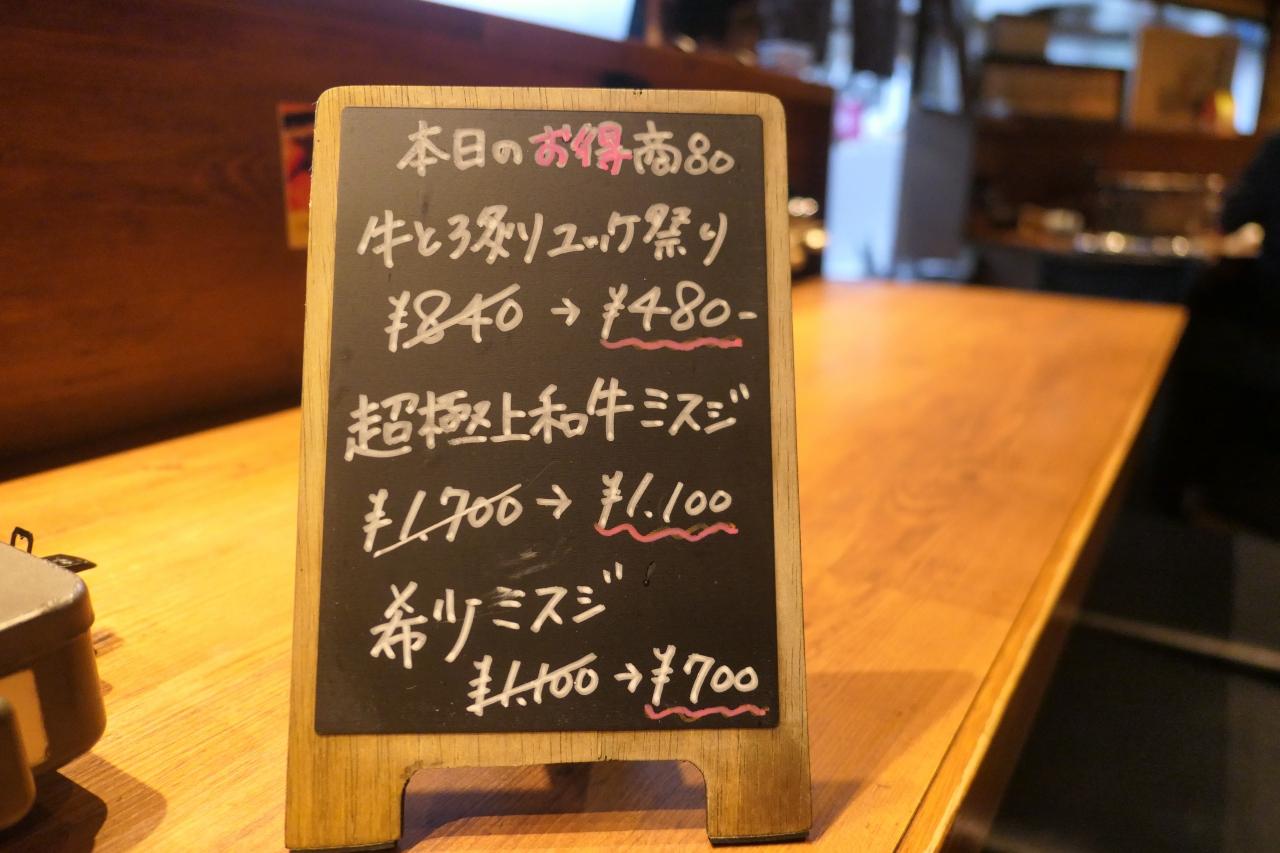 本日のお得商品
牛とろ炙りユッケ祭り
¥840 → ¥480-
超極上和牛ミスジ
¥1.700 → ¥1.100
希少ミスジ
¥1.100 → ¥700